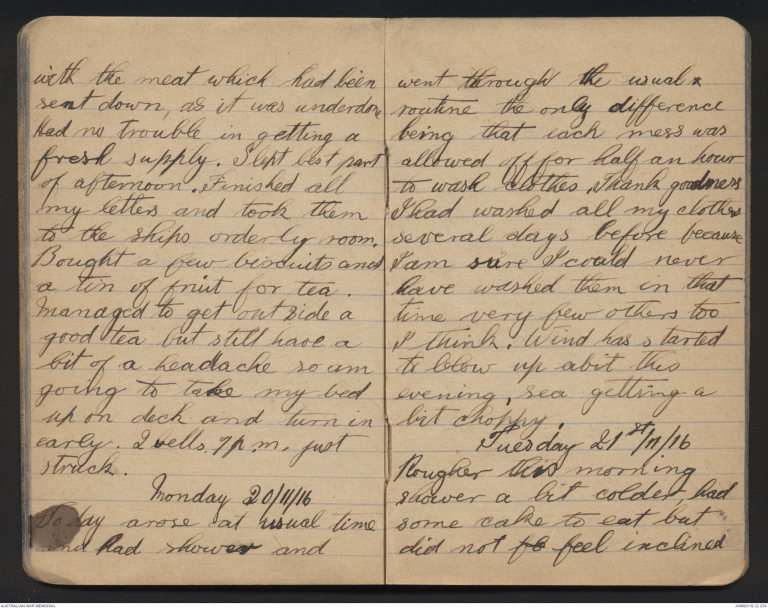 with the meat which had been
sent down, as it was underdone
Had no trouble in getting a
fresh supply. Slept best part
of afternoon. Finished all
my letters and took them
to the ships orderly room.
Bought a few biscuits and
a tin of fruit for tea.
Managed to get outside a
good tea but still have a
bit of a headache so am
going to take my bed
up on deck and turn in
early. 2 bells. 7 p.m. just
struck.
Monday 20/11/16
To day arose at usual time
and had shower and
went through the usual
routine the only difference
being that each mess was
allowed off for half an hour
to wash clothes. Thank goodness
I had washed all my clothes
several days before because
I am sure I could never
have washed them in that
time very few others too
I think. Wind has started
to blow up abit this
evening, sea getting a
bit choppy.
Tuesday 21st/11/16
Rougher this morning
shower a bit colder, had
some cake to eat but
did not fe feel inclined
AUSTRALIAN WAR MEMORIAL